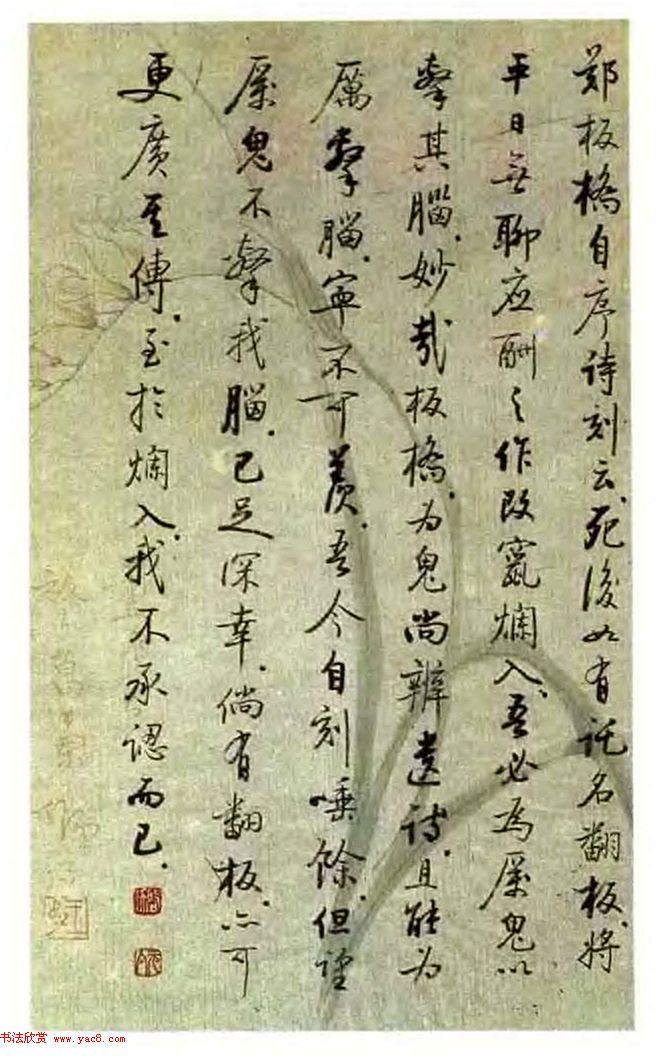 郑板橋自序詩刻云、死後如有託名翻板、将
平日無聊应酬之作改竄爛入、吾必為厲鬼以
擊其腦、妙哉板橋、为鬼尚辨遺詩、且能为
厲擊腦、寧不可羡、吾今自刻唾餘、但望
厲鬼不擊我腦、已足深幸、倘有翻板、亦可
更廣其傳、至於爛入、我不承認而已、
书法欣赏 www.yac8.com